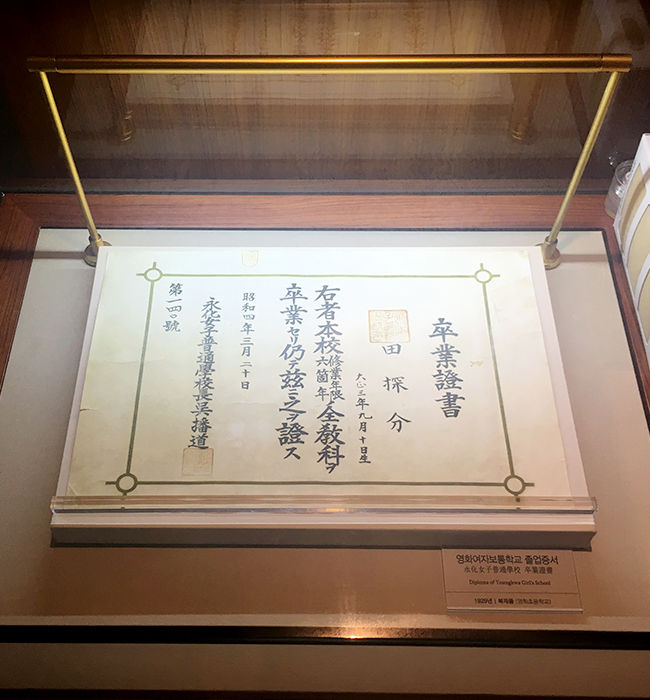 卒業證書
田 探 分
大正三年九月十日生
右者本校修業年限六箇年ノ全敎科ヲ
卒業セリ仍テ玆ニ之ヲ證ス
昭和四年三月二十日
永化女子普通學校長吳播道
第一四〇號
영화여자보통학교 졸업증서
永化女子普通學校 卒業證書
Diploma of Younghwa Girl's School
1929년 | 복제물 (영화초등학교)